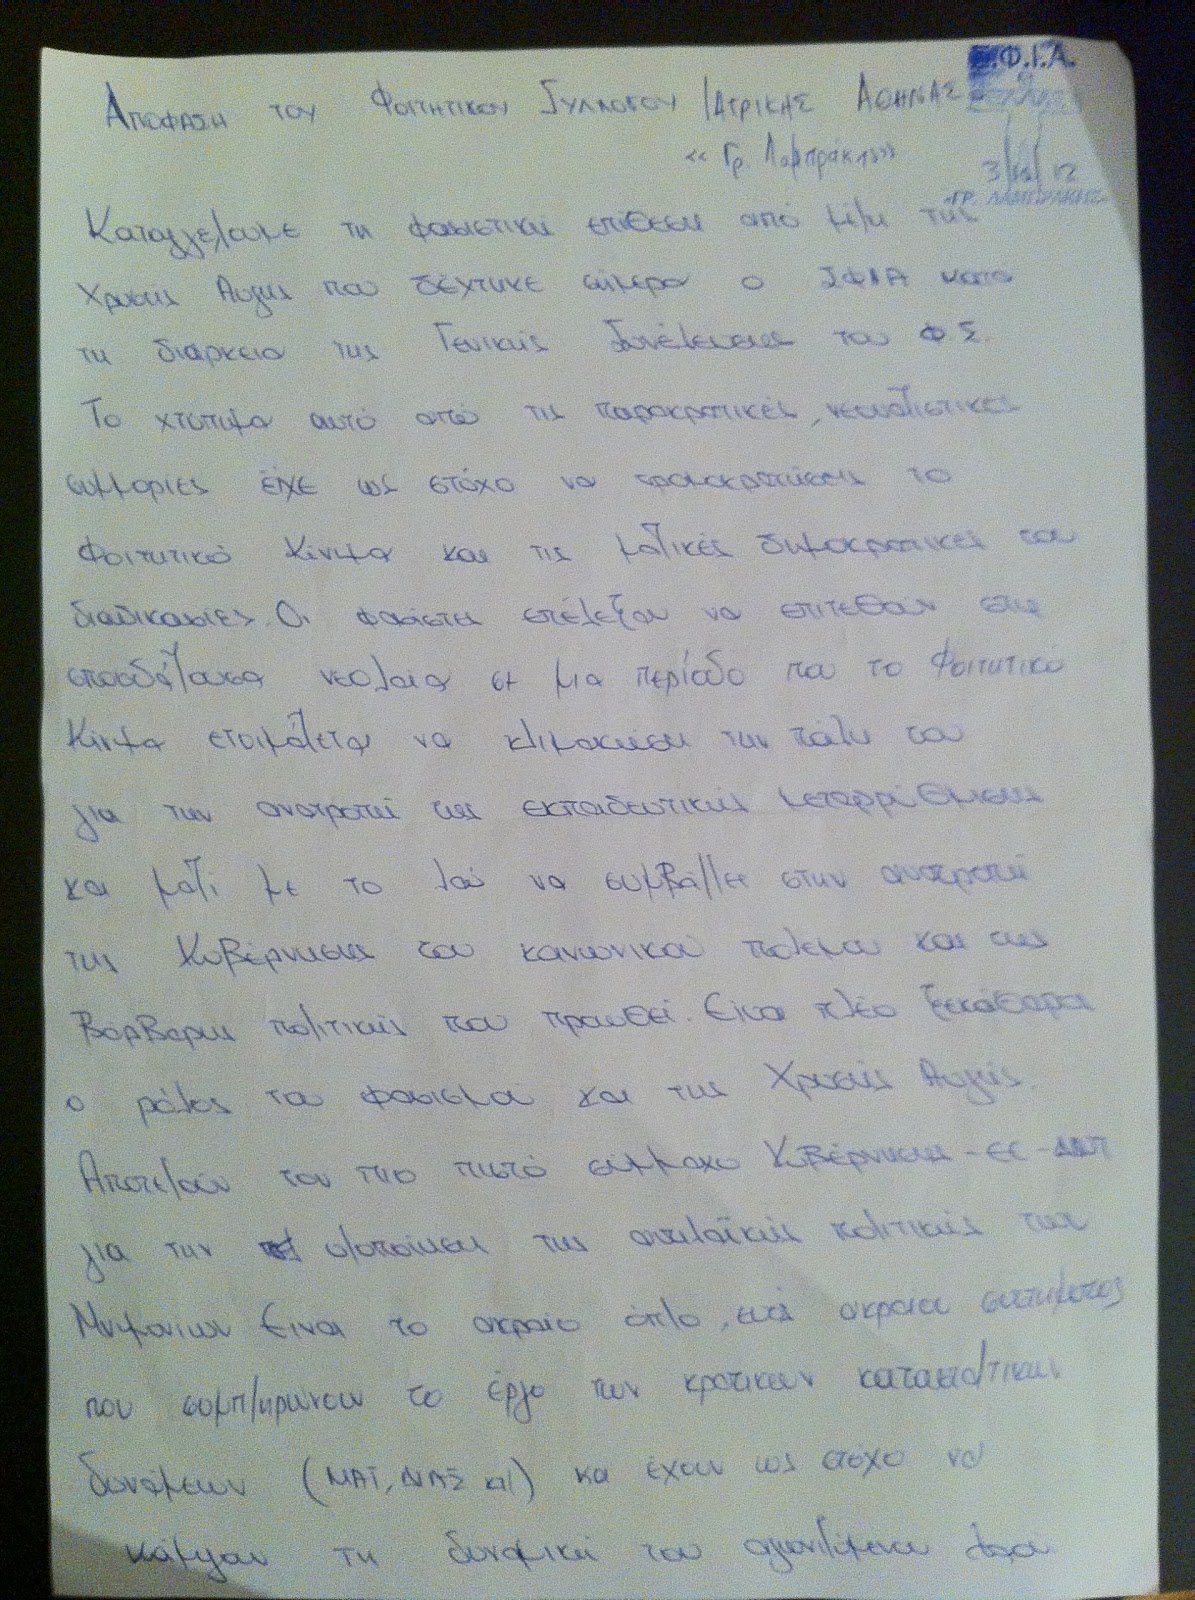 Σ.Φ.Ι.Α.
Απόφαση του Φοιτητικού Συλλόγου Ιατρικής Αθήνας
« Γρ. Λαμπράκης»
3/12/12
"ΓΡ. ΛΑΜΠΡΑΚΗΣ"
Καταγγέλουμε τη φασιστική επίθεση από μέλη της
Χρυσής Αυγής που δέχτηκε σήμερα ο ΣΦΙΑ κατα
τη διάρκεια της Γενικής Συνέλευσης του Φ.Σ.
Το χτύπημα αυτό από τις παρακρατικές, νεοναζιστικές
συμμορίες είχε ως στόχο να τρομοκρατήσει το
Φοιτητικό Κίνημα και τις μαζικές δημοκρατικές του
διαδικασίες. Οι φασίστες επέλεξαν να επιτεθούν στη
σπουδάζουσα νεολαία σε μια περίοδο που το Φοιτητικό
Κίνημα ετοιμάζεται να κλιμακώσει την πάλη του
για την ανατροπή της εκπαιδευτικής μεταρρύθμισης
και μαζί με το λαό να συμβάλλει στην ανατροπή
της Κυβέρνησης του κανονικού πολέμου και της
βάρβαρης πολιτικής που προωθεί. Είναι πλέον ξεκάθαρος
ο ρόλος του φασισμού και της Χρυσής Αυγής.
Αποτελούν τον πιο πιστό σύμμαχο Κυβέρνησης - ΕΕ - ΔΝΤ
για την υλοποίηση της αντιλαϊκής πολιτικής των
Μνημονίων. Είναι το ακραίο όπλο, ενός ακραίου συστήματος
που συμπληρώνουν το έργο των κρατικών κατασταλτικών
δυνάμεων (ΜΑΤ, ΔΙΑΣ κλ) και έχουν ως στόχο να
κάμψουν τη δυναμική του αγωνιζόμενου λαού